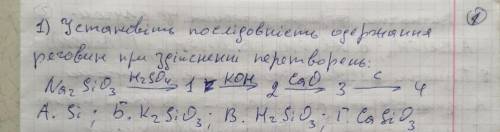 1) Установіть послідовність одержання
речовин при здійсненні перетворень:
Na₂SiO₃ —H₂SO₄→ 1 —KOH→ 2 —CaO→ 3 —C→ 4
А. Si; Б. K₂SiO₃; В. H₂SiO₃; Г. CaSiO₃
1